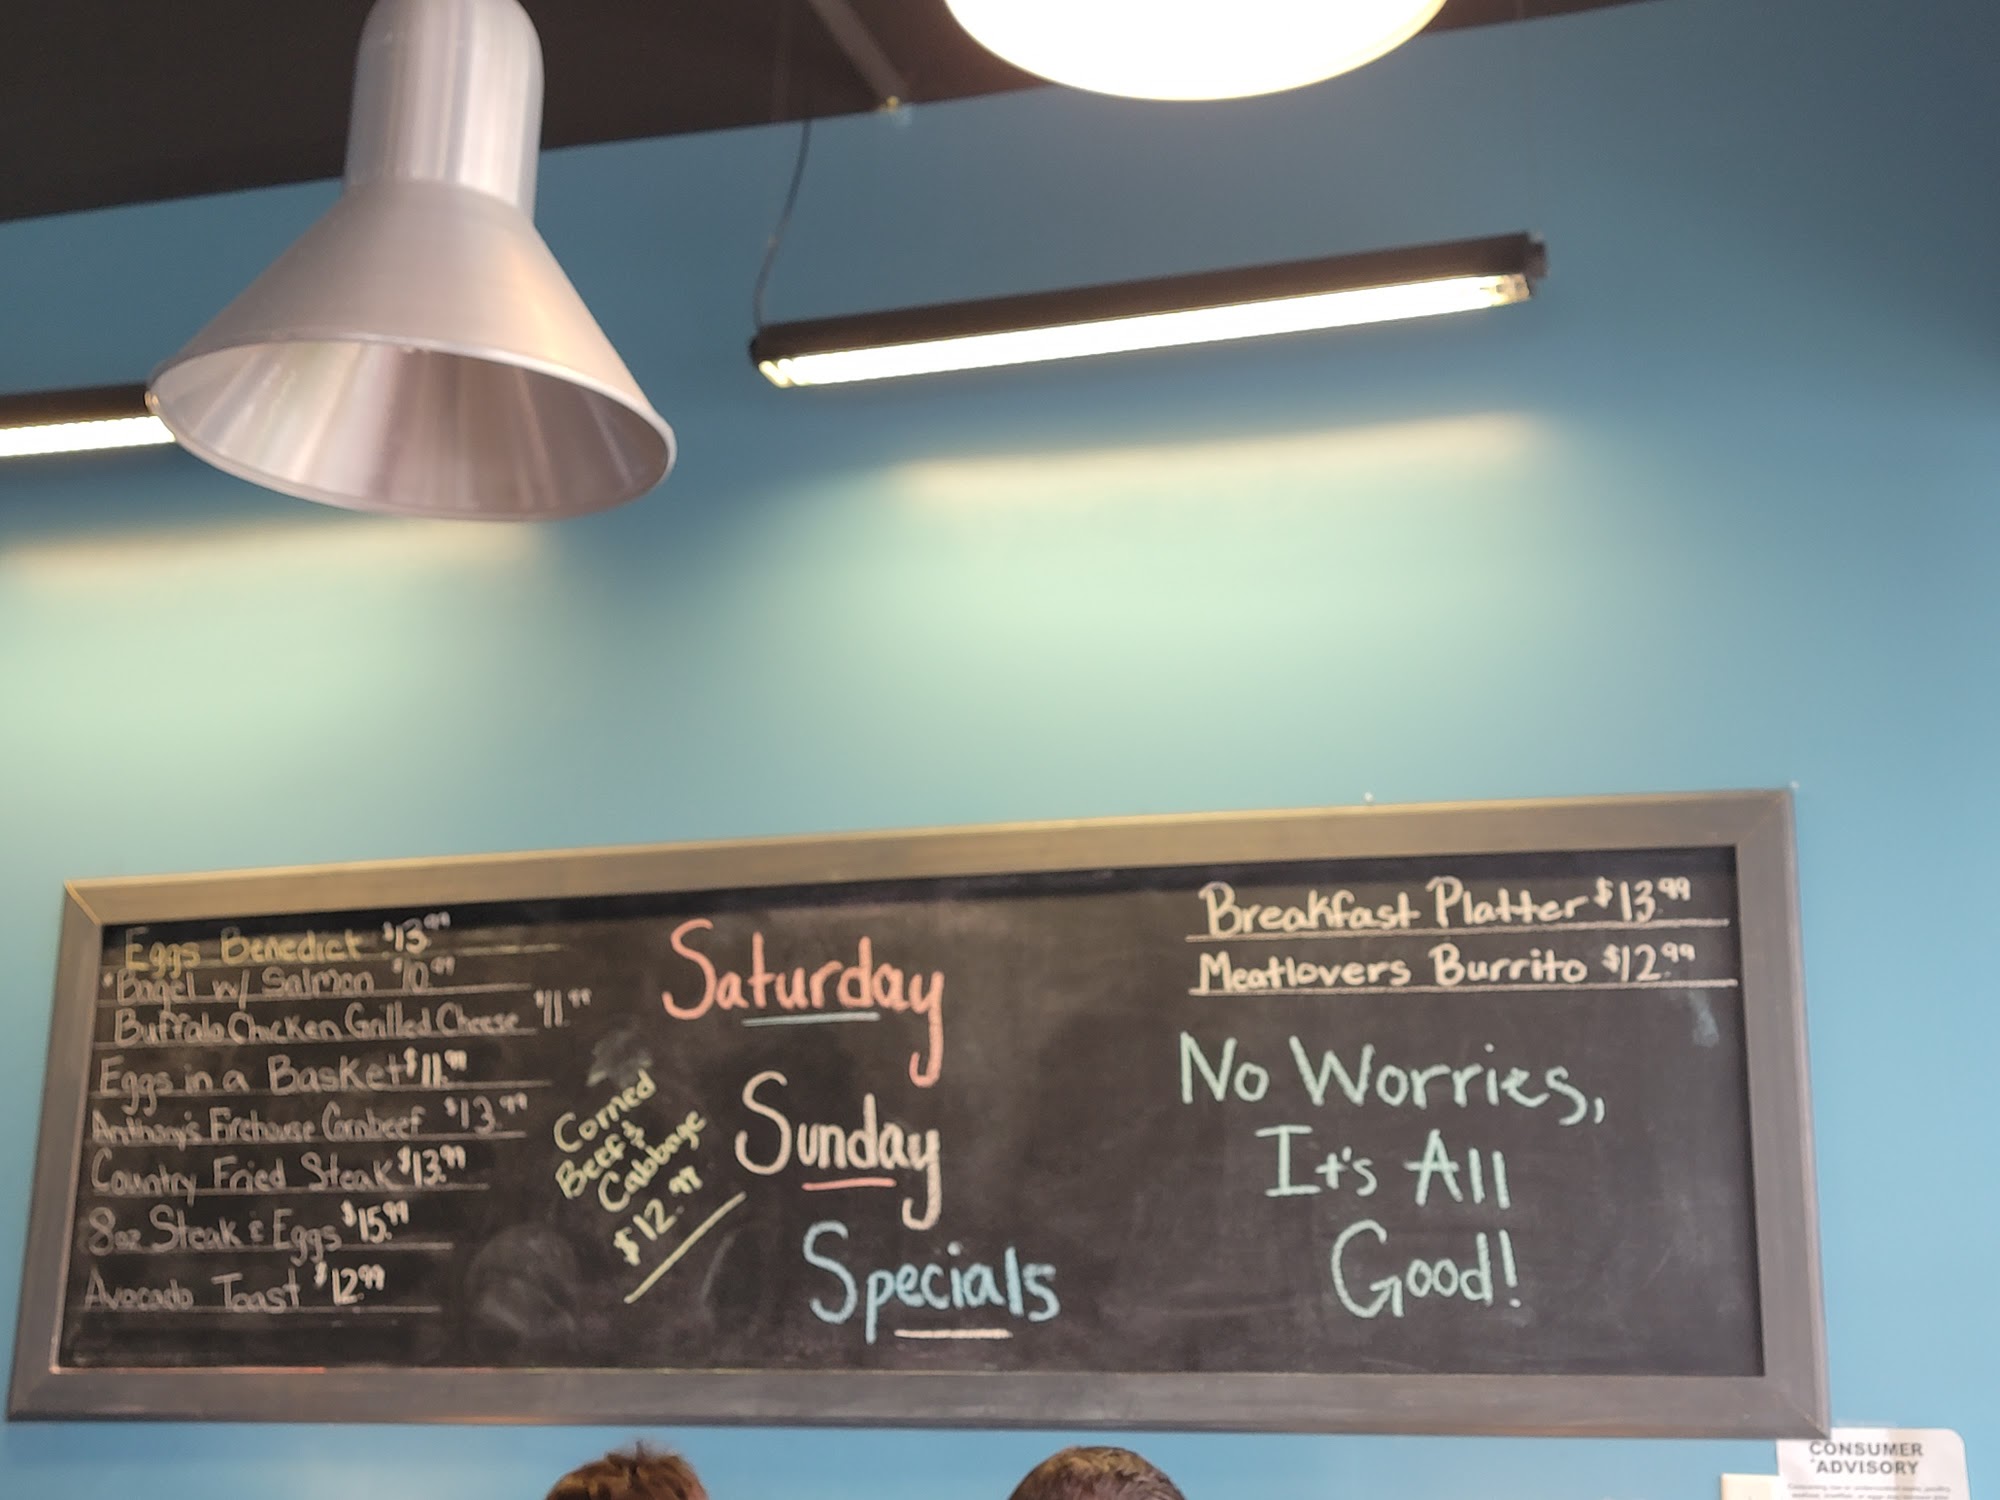 Eggs Benedict $13.99
*Bagel w/ Salmon $10.99
Buffalo Chicken Grilled Cheese $11.99
Eggs in a Basket $11.99
Anthony's Firehouse Cornbeef $13.99
Country Fried Steak $13.99
8oz Steak & Eggs $15.99
Avocado Toast $12.99
Corned
Beef &
Cabbage
$12.99
Saturday
Sunday
Specials
Breakfast Platter $13.99
Meatlovers Burrito $12.99
No Worries,
It's All
Good!
CONSUMER
*ADVISORY